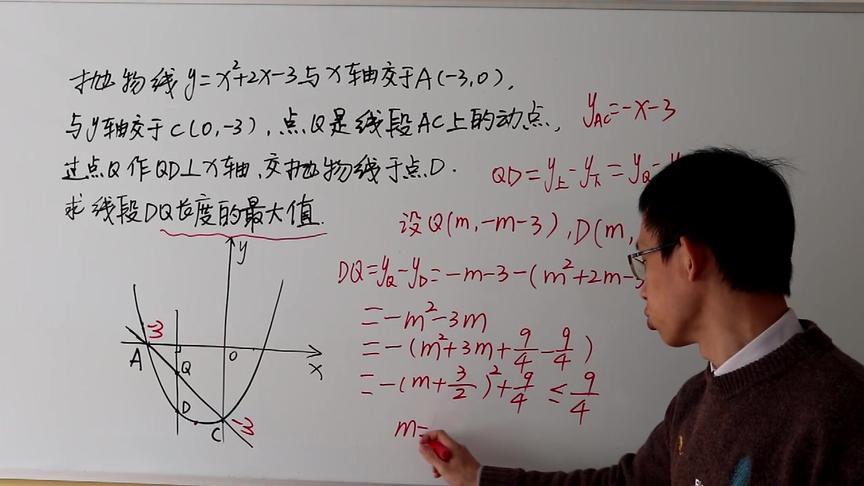 抛物线y=x²+2x-3与x轴交于A(-3,0),
与y轴交于C(0,-3),点Q是线段AC上的动点,
过点Q作QD⊥x轴,交抛物线于点D.
求线段DQ长度的最大值.
y_AC=-x-3
QD=y上-y下=y_Q-y
设Q(m,-m-3),D(m,
DQ=y_Q-y_D=-m-3-(m²+2m-3
=-m²-3m
=-(m²+3m+9/4-9/4)
=-(m+3/2)²+9/4≤9/4
m=
y
-3
A
O
x
Q
D
C
-3